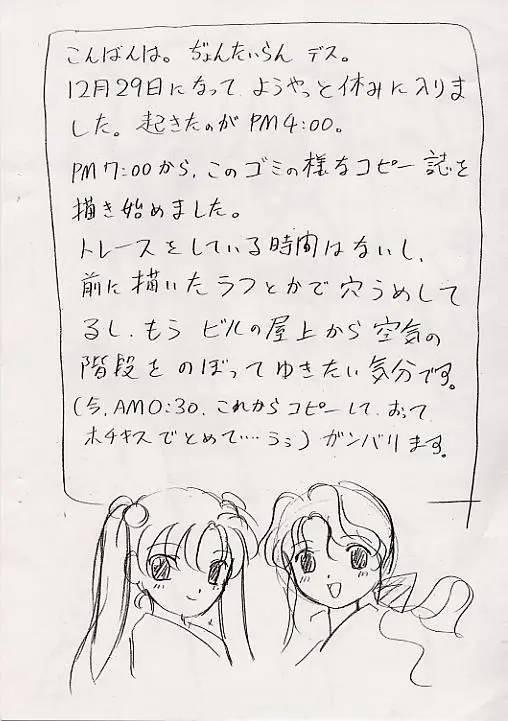 こんばんは。ぢょんたいらん デス。
12月29日になって、ようやっと休みに入りま
した。起きたのがPM4:00。
PM7:00から、このゴミの様なコピー誌を
描き始めました。
トレースをしている時間はないし、
前に描いたラフとかで穴うめして
るし、もう ビルの屋上から空気の
階段をのぼってゆきたい気分です。
(今、AM0:30、これからコピーして、おって
ホチキスでとめて…うぅ)ガンバります。